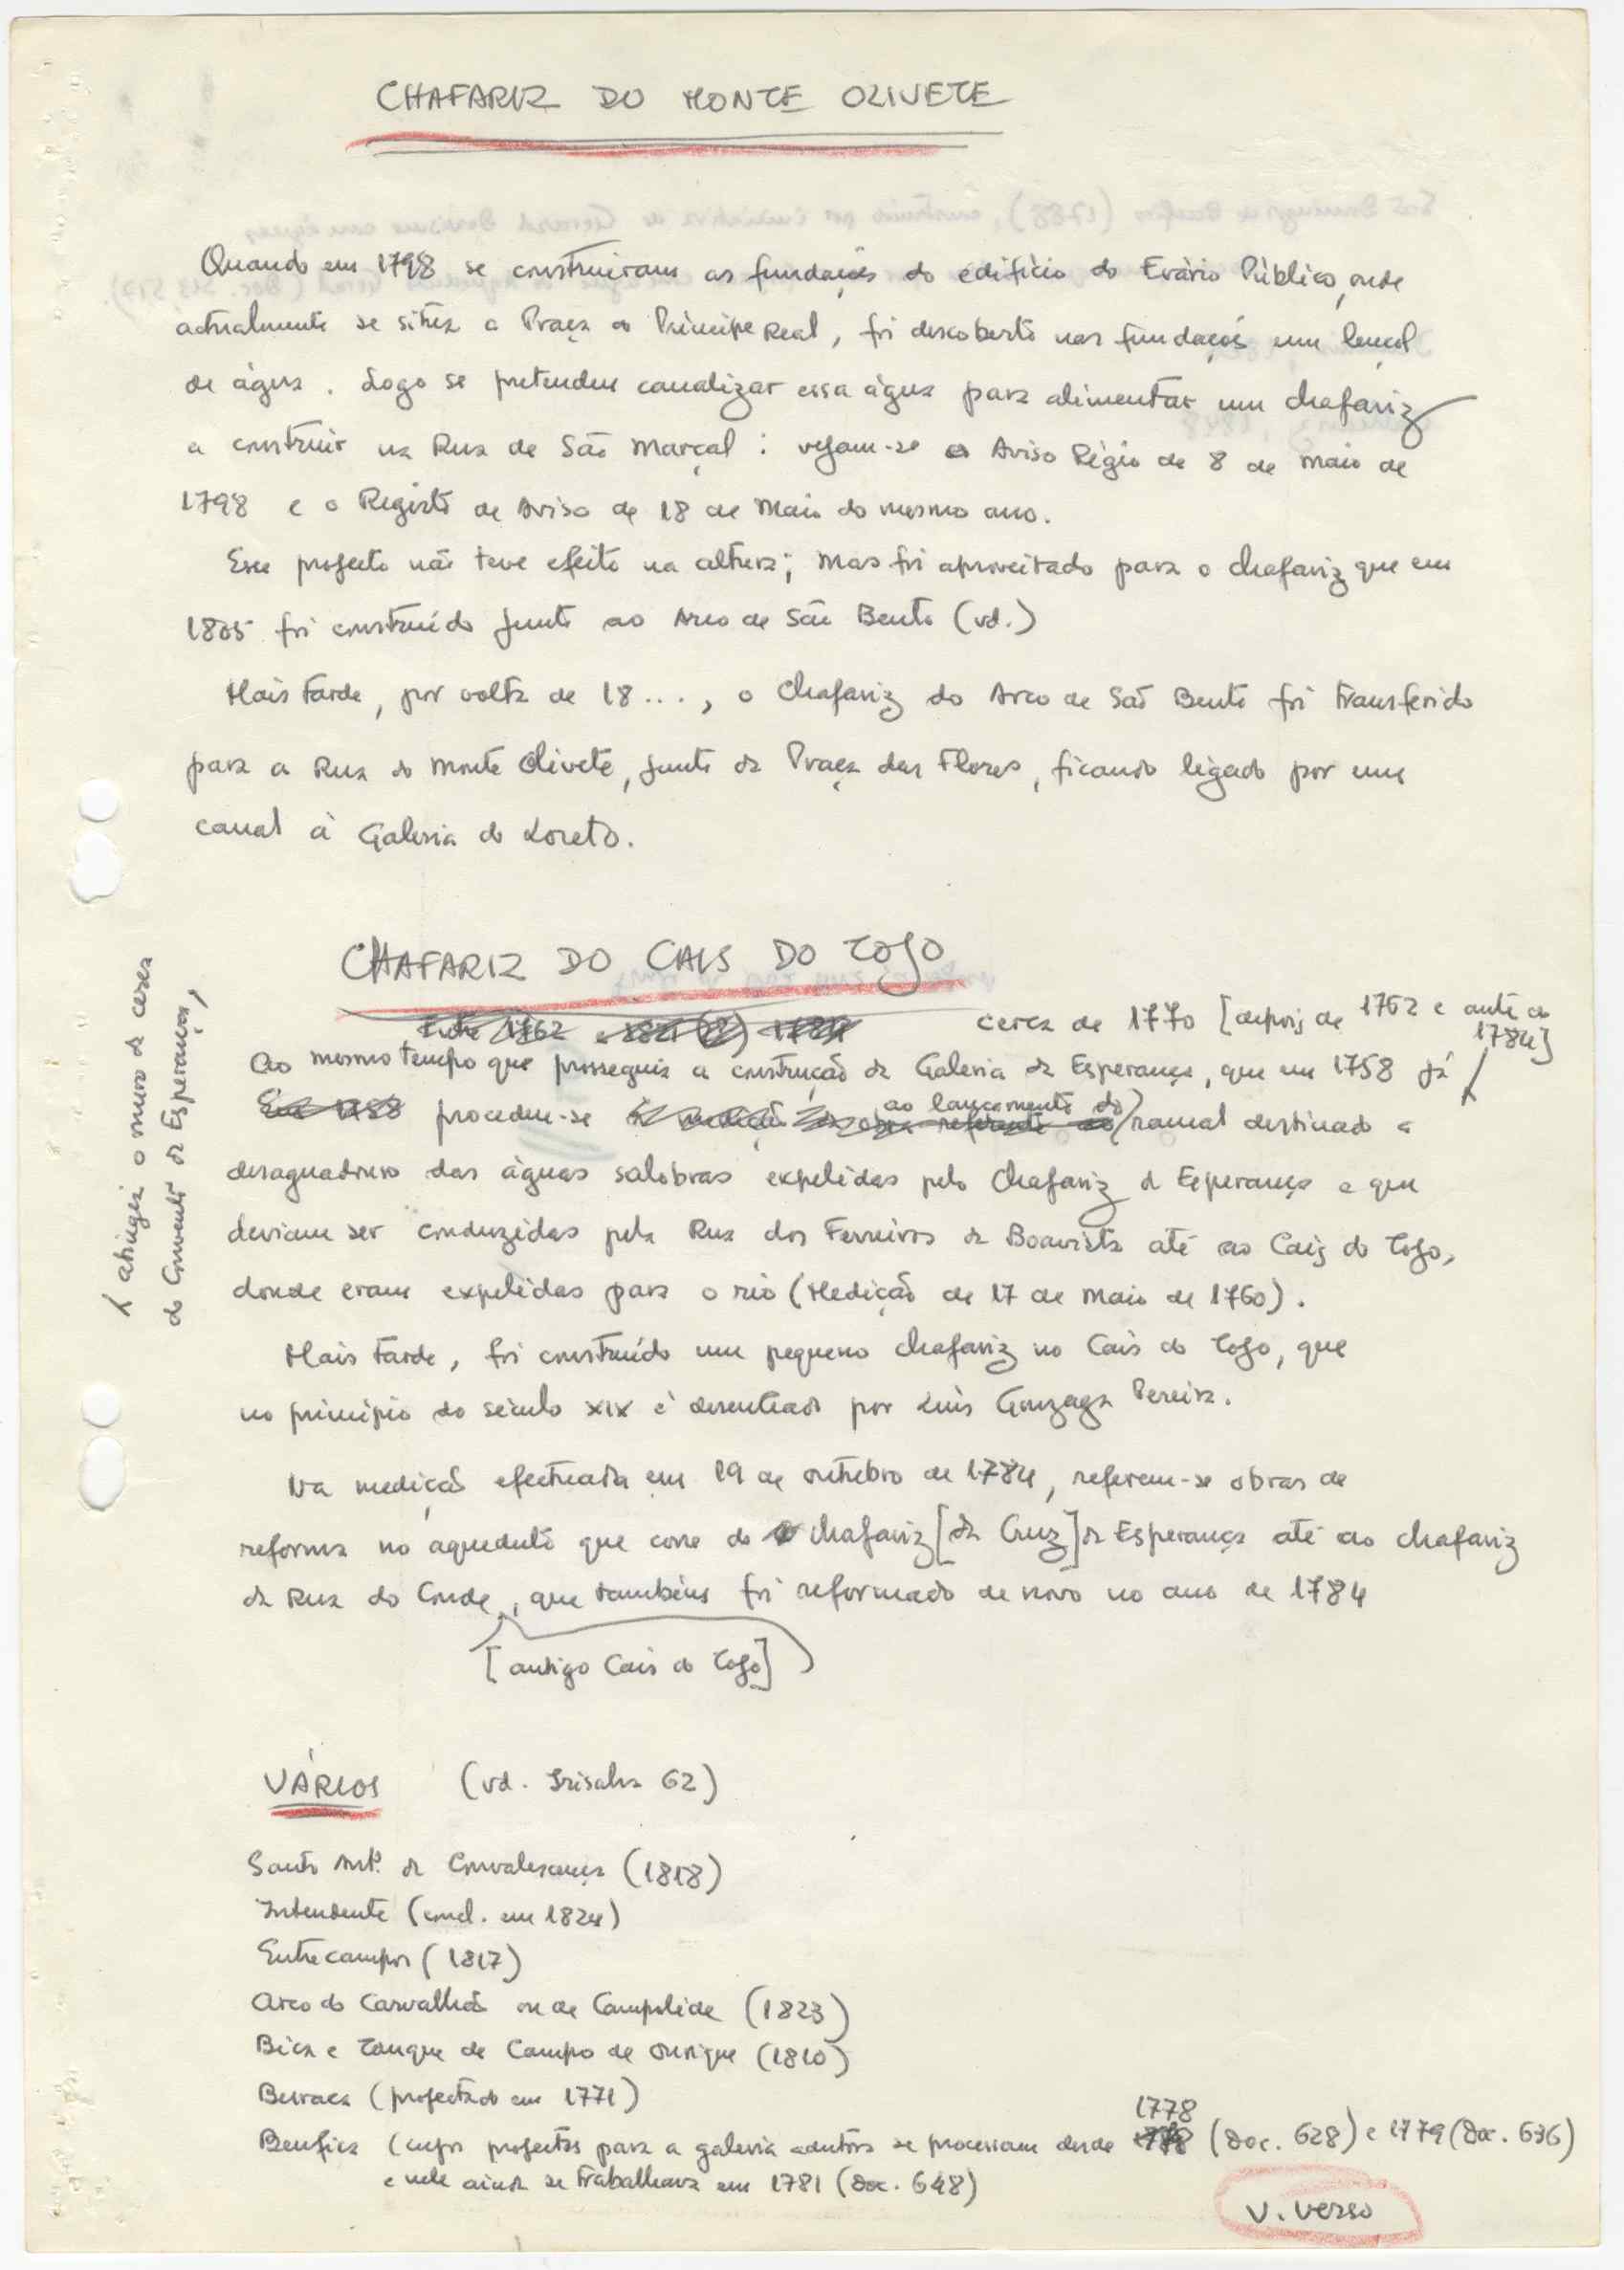 CHAFARIZ DO MONTE OLIVETE
Quando em 1798 se construiram as fundações do edifício do Erário Público, onde
actualmente se situa a Praça do Príncipe Real, foi descoberto nas fundações um lençol
de água. Logo se pretendeu canalizar essa água para alimentar um chafariz
a construir na Rua de São Marçal: vejam-se o Aviso Régio de 8 de Maio de
1798 e o Registo de Aviso de 18 de Maio do mesmo ano.
Esse projecto não teve efeito na altura; mas foi aproveitado para o chafariz que em
1805 foi construído junto ao Arco de São Bento (vd.)
Mais tarde, por volta de 18..., o Chafariz do Arco de São Bento foi transferido
para a Rua do Monte Olivete, junto da Praça das Flores, ficando ligado por um
canal à Galeria do Loreto.
CHAFARIZ DO CAIS DO TOJO
Entre 1762 e 1784
cerca de 1770 [depois de 1762 e antes de
1784]
Ao mesmo tempo que prosseguia a construção da Galeria da Esperança, que em 1758 já
atingia o muro da cerca
do Convento da Esperança,
procedeu-se ao lançamento do ramal destinado a
desaguadouro das águas salobras expelidas pelo Chafariz da Esperança e que
deviam ser conduzidas pela Rua dos Ferreiros da Boavista até ao Cais do Tojo,
donde eram expelidas para o rio (Medição de 17 de Maio de 1760).
Mais tarde, foi construído um pequeno chafariz no Cais do Tojo, que
no princípio do século XIX é desenhado por Luís Gonzaga Pereira.
Na medição efectuada em 19 de outubro de 1784, referem-se obras de
reforma no aqueduto que corre do chafariz [da Cruz] da Esperança até ao chafariz
da Rua do Conde, que também foi reformado de novo no ano de 1784
[antigo Cais do Tojo]
VÁRIOS (vd. Irisalva 62)
Santo Antº. da Convalescença (1818)
Intendente (concl. em 1824)
Entrecampos (1817)
Arco do Carvalhão ou de Campolide (1823)
Bica e Tanque de Campo de Ourique (1810)
Buraca (projectado em 1771)
1778
Benfica (cujos projectos para a galeria adutora se processam desde 1778 (Doc. 628) e 1779 (Doc. 636)
e nele ainda se trabalhava em 1781 (Doc. 648)
V. verso